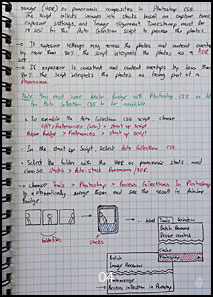 image (HDR) or panoramic composites in Photoshop CS5.
The Script collects images into stacks based on capture time,
exposure settings, and image alignment. Timestamp must be
in the Auto Collection Script to process the photos.
→ If exposure settings vary across the photos and content overlaps
by more than 80%, the script interprets the photos as a HDR
set
→ If exposure is constant and content overlaps by less than
80%, the script interprets the photos as being part of a
Panorama.
Note: You must have Adobe Bridge with Photoshop CS5
for Auto Collection CS5 to be available
→ To enable the Auto Collection CS5 script choose
Edit > Preferences (win) > Start up Script
Adobe Bridge > Preferences > Start up Script
→ In the Start up Script select Auto Collection CS5.
→ Select the folder with the HDR or panoramic shots and
choose Stacks > Auto-Stack Panorama/HDR.
→ Choose Tools > Photoshop > Process Collections in Photoshop
to automatically merge them and see the result in Adobe
Bridge.
Stacks
Tools
Window
Batch Rename
Cache
Photoshop
Batch
Image Processor
Photomerge
Process Collections in Photoshop
04